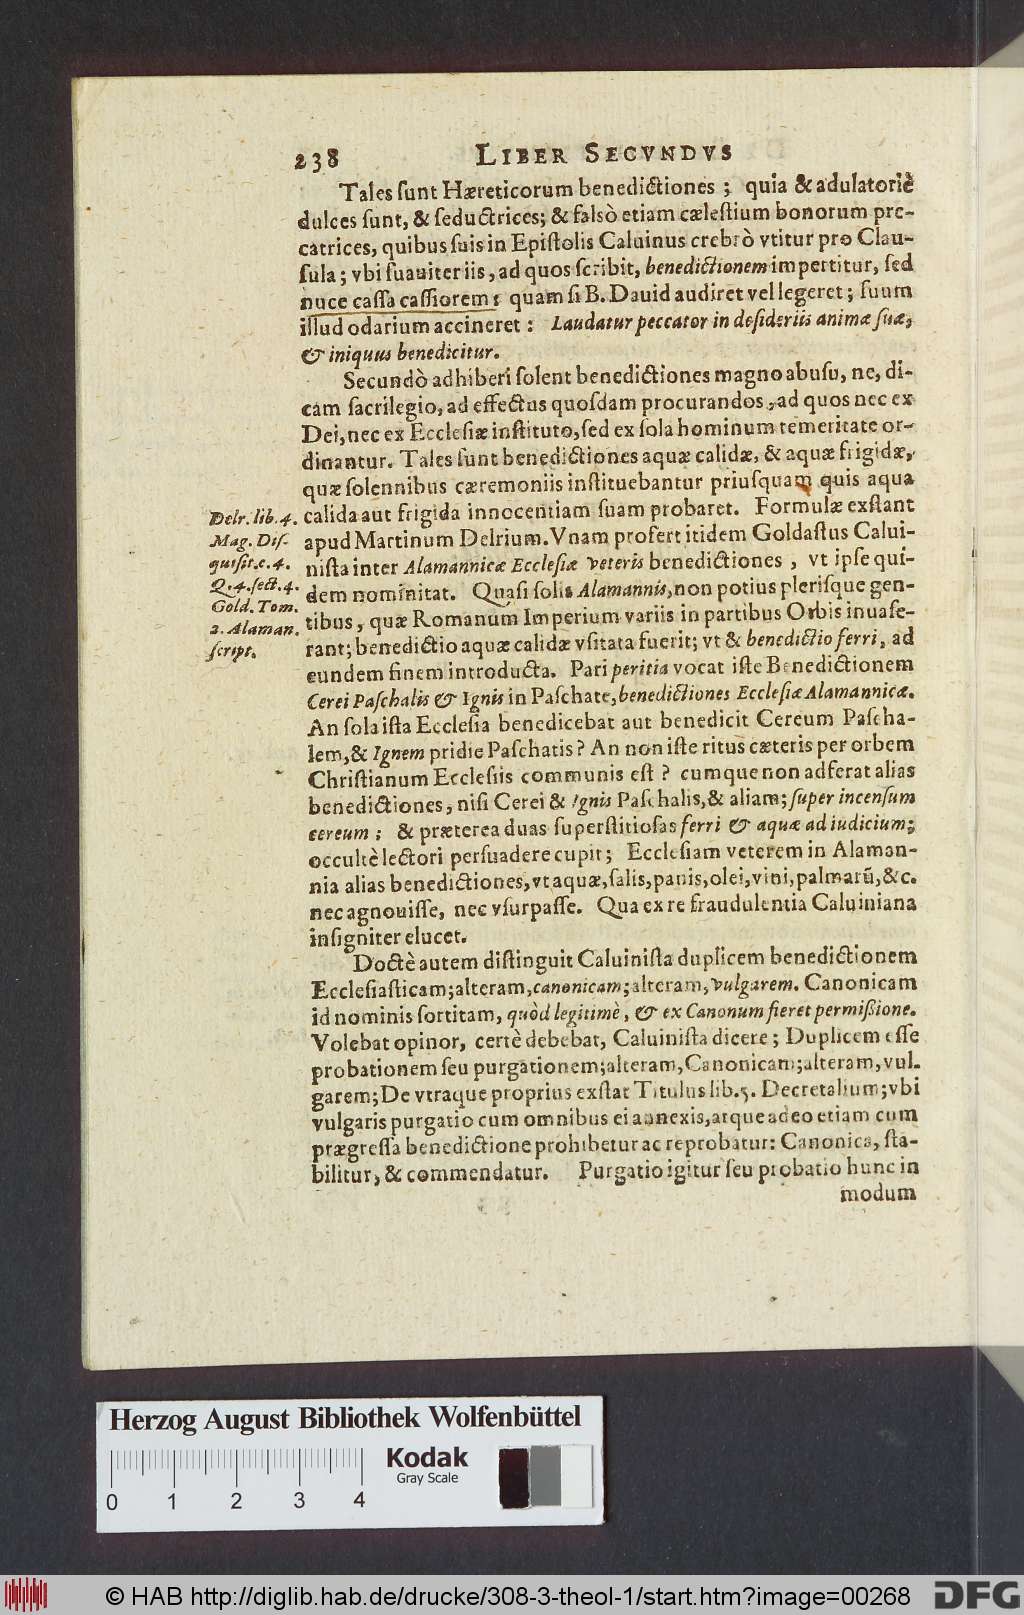 238 LIBER SECVNDVS
Tales ſunt Hæreticorum benedictiones; quia & adulatoriè
dulces ſunt, & ſeductrices; & falsò etiam cæleſtium bonorum pre-
catrices, quibus ſuis in Epiſtolis Caluinus crebrò vtitur pro Clau-
ſula; vbi ſuauiter iis, ad quos ſcribit, benedictionem impertitur, ſed
nuce caſſa caſſiorem: quam ſi B. Dauid audiret vel legeret; ſuum
illud odarium accineret: Laudatur peccator in deſideriis animæ ſuæ,
& iniquus benedicitur.
Secundò adhiberi ſolent benedictiones magno abuſu, ne, di-
cam ſacrilegio, ad effectus quoſdam procurandos, ad quos nec ex
Dei, nec ex Eccleſiæ inſtituto, ſed ex ſola hominum temeritate or-
dinantur. Tales ſunt benedictiones aquæ calidæ, & aquæ frigidæ,
quæ ſolennibus cæremoniis inſtituebantur priuſquam quis aqua
calida aut frigida innocentiam ſuam probaret. Formulæ exſtant
apud Martinum Delrium. Vnam profert itidem Goldaſtus Calui-
niſta inter Alamannicæ Eccleſiæ veteris benedictiones, vt ipſe qui-
dem nominitat. Quaſi ſolis Alamannis, non potius pleriſque gen-
tibus, quæ Romanum Imperium variis in partibus Orbis inuaſe-
rant; benedictio aquæ calidæ vſitata fuerit; vt & benedictio ferri, ad
eundem finem introducta. Pari peritia vocat iſte Benedictionem
Cerei Paſchalis & Ignis in Paſchate, benedictiones Eccleſiæ Alamannicæ.
An ſola iſta Eccleſia benedicebat aut benedicit Cereum Paſcha-
lem, & Ignem pridie Paſchatis? An non iſte ritus cæteris per orbem
Chriſtianum Eccleſiis communis eſt? cumque non adferat alias
benedictiones, niſi Cerei & Ignis Paſchalis, & aliam; ſuper incenſum
cereum; & præterea duas ſuperſtitioſas ferri & aquæ ad iudicium;
occultè lectori perſuadere cupit; Eccleſiam veterem in Alaman-
nia alias benedictiones, vt aquæ, ſalis, panis, olei, vini, palmarũ, &c.
nec agnouiſſe, nec vſurpaſſe. Qua ex re fraudulentia Caluiniana
inſigniter elucet.
Delr. lib. 4.
Mag. Diſ-
quiſit. c. 4.
Q. 4. ſect. 4.
Gold. Tom.
2. Alaman.
ſcript.
Doctè autem diſtinguit Caluiniſta duplicem benedictionem
Eccleſiaſticam; alteram, canonicam; alteram, vulgarem. Canonicam
id nominis ſortitam, quòd legitimè, & ex Canonum fieret permißione.
Volebat opinor, certè debebat, Caluiniſta dicere; Duplicem eſſe
probationem ſeu purgationem; alteram, Canonicam; alteram, vul-
garem; De vtraque proprius exſtat Titulus lib. 5. Decretalium; vbi
vulgaris purgatio cum omnibus ei annexis, atque adeo etiam cum
prægreſſa benedictione prohibetur ac reprobatur: Canonica, ſta-
bilitur, & commendatur. Purgatio igitur ſeu probatio hunc in
modum
Herzog August Bibliothek Wolfenbüttel
Kodak
Gray Scale
0 1 2 3 4
© HAB http://diglib.hab.de/drucke/308-3-theol-1/start.htm?image=00268
DFG